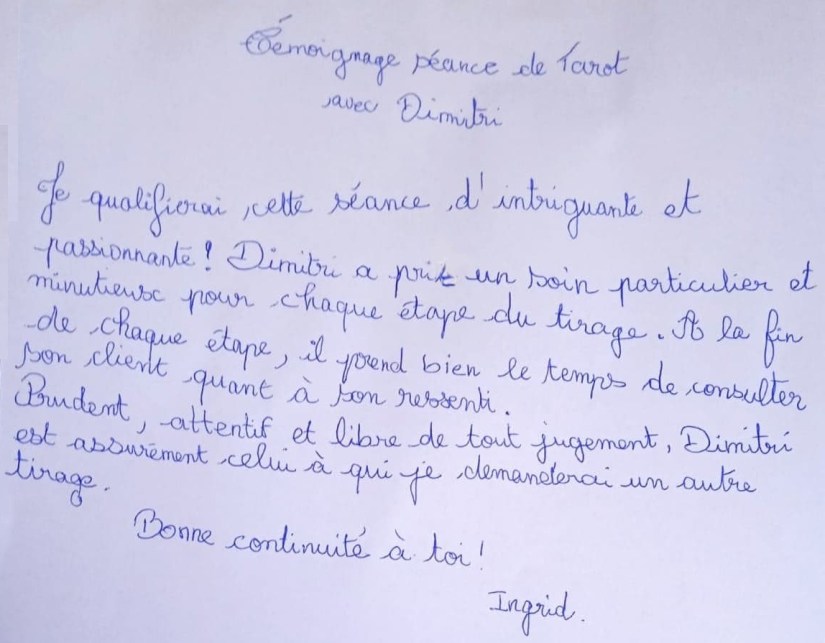 Témoignage séance de Tarot
avec Dimitri
Je qualifierai cette séance d'intriguante et
passionnante! Dimitri a prit un soin particulier et
minutieux pour chaque étape du tirage. A la fin
de chaque étape, il prend bien le temps de consulter
son client quant à son ressenti.
Prudent, attentif et libre de tout jugement, Dimitri
est assurément celui à qui je demanderai un autre
tirage.
Bonne continuité à toi!
Ingrid.